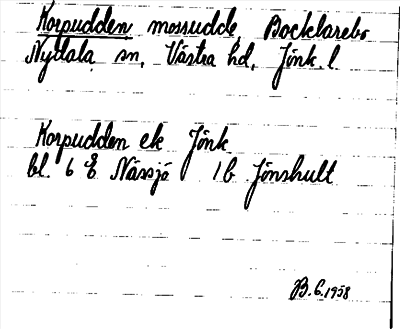 Korpudden mossudde, Bocklarebo
Nydala sn, Västra hd, Jönk. l.
Korpudden ek Jönk
bl. 6 E Nässjö 1b Jönshult
B.G. 1958